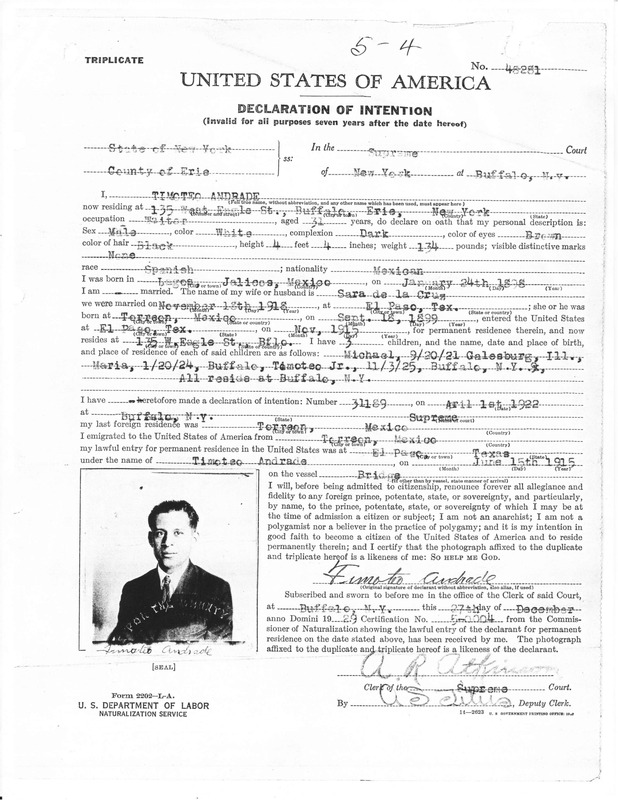 5-4
TRIPLICATE
No. 48281
UNITED STATES OF AMERICA
DECLARATION OF INTENTION
(Invalid for all purposes seven years after the date hereof)
State of New York
County of Erie
ss:
In the Supreme Court
of New York at Buffalo, N.Y.
I, TIMOTEO ANDRADE
(Full true name, without abbreviation, and any other name which has been used, must appear here)
now residing at 135 West Eagle St., Buffalo Erie, New York
(Number and street) (City or town) (County) (State)
occupation Waiter, aged 31 years, do declare on oath that my personal description is:
Sex Male, color White, complexion Dark, color of eyes Brown
color of hair Black, height 4 feet 4 inches; weight 134 pounds; visible distinctive marks
None
race Spanish; nationality Mexican
I was born in Lagos, Jalicos, Mexico, on January 24th 1898
(City or town) (Country) (Month) (Day) (Year)
I am married. The name of my wife or husband is Sara de la Cruz
we were married on November 18th 1918, at El Paso, Tex.; she or he was
(Month) (Day) (Year) (City or town) (State or country)
born at Torreon, Mexico, on Sept. 18, 1899, entered the United States
(City or town) (State or country) (Month) (Day) (Year)
at El Paso, Tex. on Nov, 1915, for permanent residence therein, and now
(City or town) (State) (Month) (Day) (Year)
resides at 135 W. Eagle St., Bflo. I have 3 children, and the name, date and place of birth,
(City or town) (State or country)
and place of residence of each of said children are as follows: Michael, 9/20/21 Galesburg, Ill.,
Maria, 1/20/24, Buffalo, Timoteo Jr., 11/3/25, Buffalo, N.Y.
All reside at Buffalo, N.Y.
I have heretofore made a declaration of intention: Number 31189, on Aril 1st 1922
(Date)
at Buffalo, N.Y. Supreme
(City or town) (State) (Name of court)
my last foreign residence was Torreon, Mexico
(City or town) (Country)
I emigrated to the United States of America from Torreon, Mexico
(City or town) (Country)
my lawful entry for permanent residence in the United States was at El Paso, Texas
(City or town) (State)
under the name of Timoteo Andrade, on June 15th 1915
(Month) (Day) (Year)
on the vessel Bridge
(If other than by vessel, state manner of arrival)
I will, before being admitted to citizenship, renounce forever all allegiance and
fidelity to any foreign prince, potentate, state, or sovereignty, and particularly,
by name, to the prince, potentate, state, or sovereignty of which I may be at
the time of admission a citizen or subject; I am not an anarchist; I am not a
polygamist nor a believer in the practice of polygamy; and it is my intention in
good faith to become a citizen of the United States of America and to reside
permanently therein; and I certify that the photograph affixed to the duplicate
and triplicate hereof is a likeness of me: SO HELP ME GOD.
Timoteo Andrade
(Original signature of declarant without abbreviation, also alias, if used)
Subscribed and sworn to before me in the office of the Clerk of said Court,
at Buffalo, N.Y. this 27th day of December
anno Domini 1929 Certification No. 5-0004 from the Commis-
sioner of Naturalization showing the lawful entry of the declarant for permanent
residence on the date stated above, has been received by me. The photograph
affixed to the duplicate and triplicate hereof is a likeness of the declarant.
Timoteo Andrade
[SEAL]
A R Atkinson
Clerk of the Supreme Court.
By , Deputy Clerk.
Form 2202-L-A.
U. S. DEPARTMENT OF LABOR
NATURALIZATION SERVICE
14-2623 U. S. GOVERNMENT PRINTING OFFICE